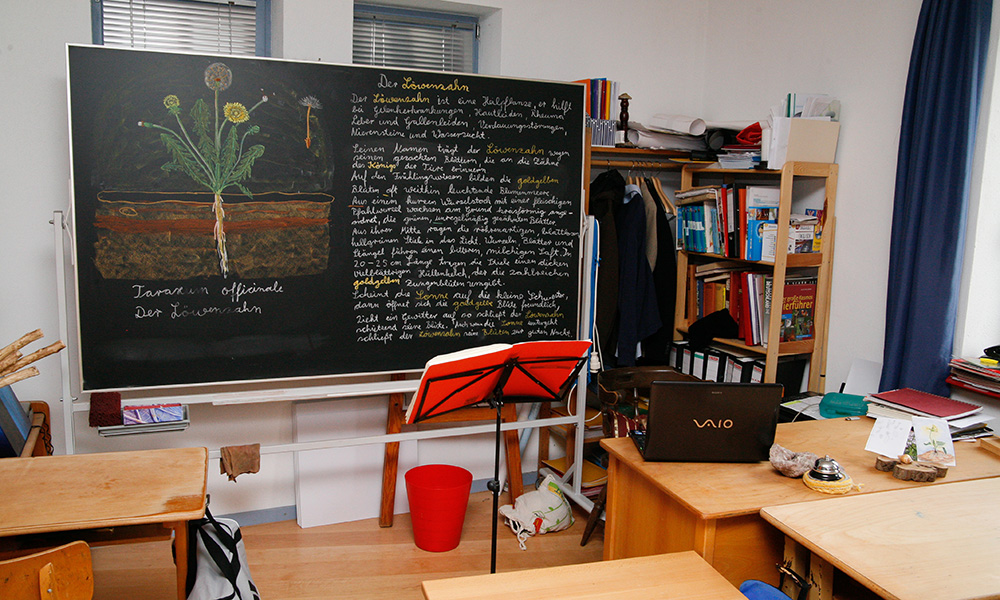 Der Löwenzahn
Der Löwenzahn ist eine Heilpflanze, er hilft
bei Gelenkerkrankungen, Hautleiden, Rheuma
Leber und Gallenleiden, Verdauungsstörungen,
Nierensteine und Wassersucht.
Seinen Namen trägt der Löwenzahn wegen
seinen gezackten Blättern, die an die Zähne
des Königs der Tiere erinnern
Auf den Frühlingswiesen bilden die goldgelben
Blüten oft weithin leuchtende Blumenmeere.
Aus einem kurzen Wurzelstock mit einer fleischigen
Pfahlwurzel wachsen am Grund kreisförmig ange-
ordnet, die grünen, unregelmäßig gezähnten Blätter.
Aus ihrer Mitte ragen die röhrenartigen, blattlosen
hellgrünen Stiele in das Licht. Wurzeln, Blätter und
Stängel führen einen bitteren, milchigen Saft. In
20-25 cm Länge tragen die Stiele einen dicken
vielblättrigen Hüllenkelch, der die zahlreichen
goldgelben Zungenblüten umgibt.
Scheint die Sonne auf die kleine Schwester,
dann öffnet sich die goldgelbe Blüte freundlich,
Zieht ein Gewitter auf so schließt der Löwenzahn
schützend seine Blüte. Auch wenn die Sonne untergeht
schließt der Löwenzahn seine Blüten zur guten Nacht.
Taraxum officinale
Der Löwenzahn
VAIO